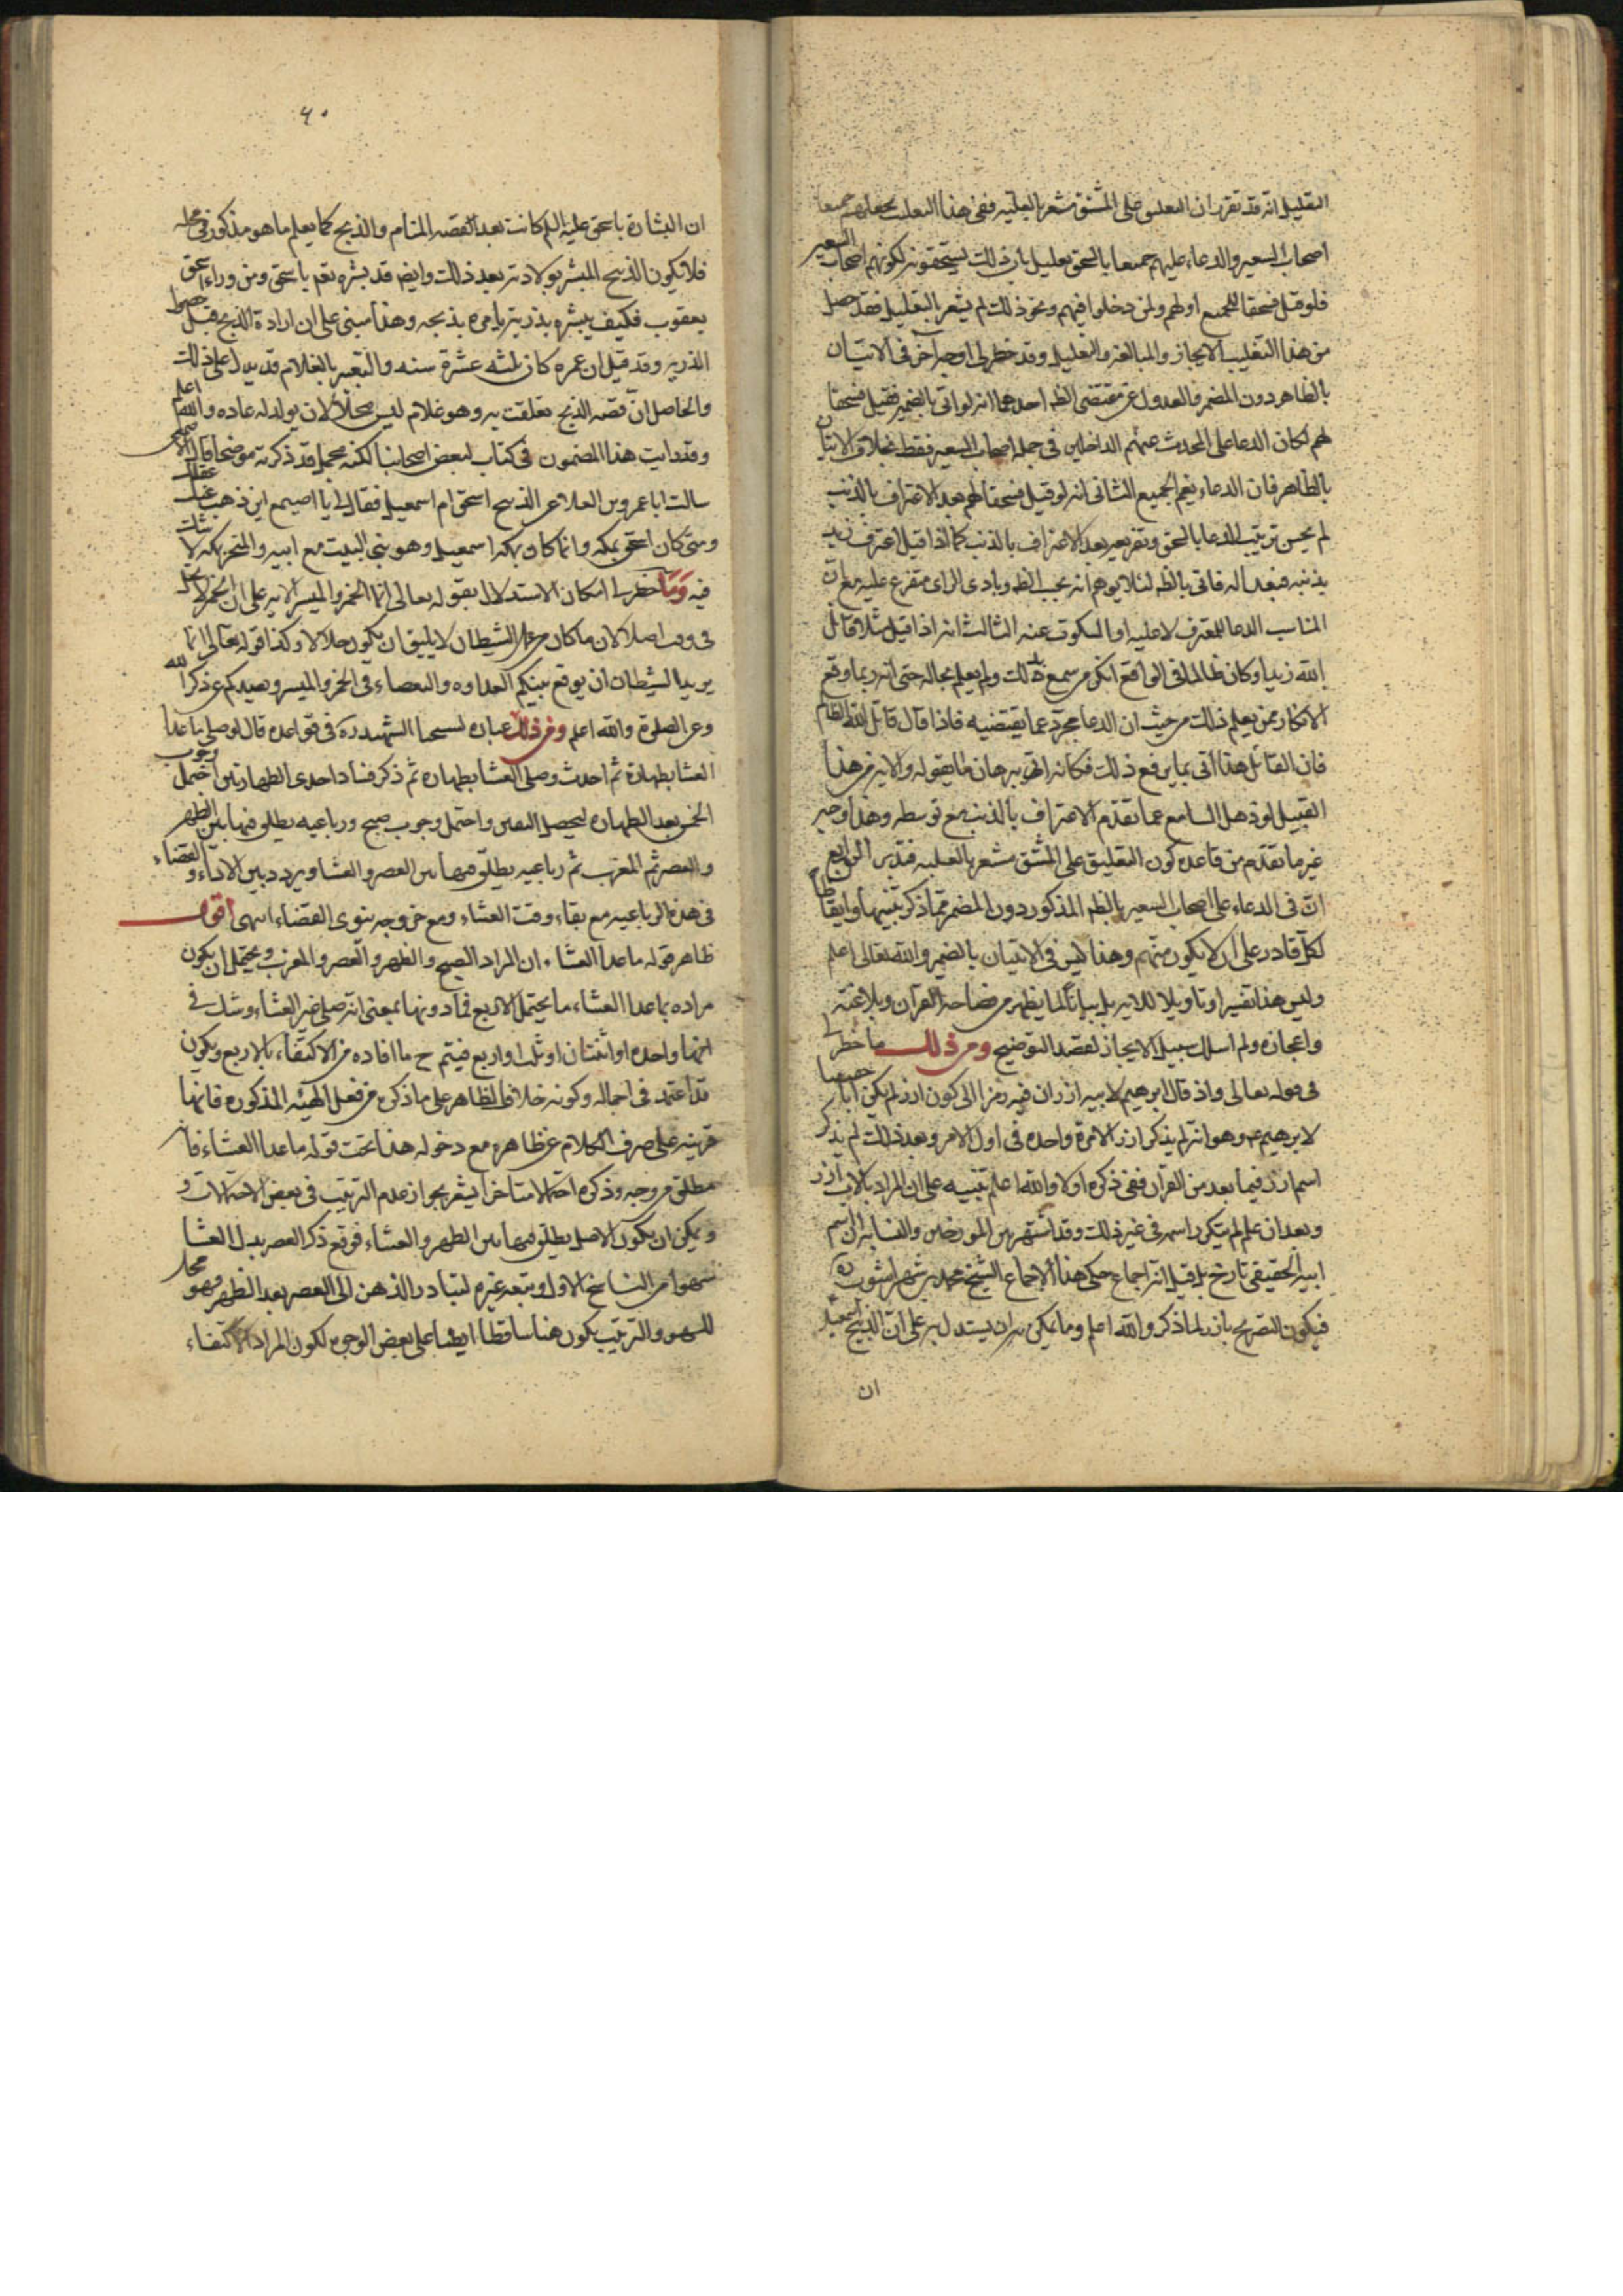 التعليل انه قد تقرر ان التعليق على المشتق مشعر بالعلية ففى هذا التغليب بجعلهم جميعا
اصحاب السعير والدعاء عليهم جميعا بالسحق تعليل بان ذلك يستحقونه لكونهم اصحاب السعير
فلو قيل فسحقا للجميع او لهم ولمن دخلوا فيهم ونحو ذلك لم يشعر بالتعليل فقد حصل
من هذا التغليب الايجاز والمبالغة والتعليل وقد خطر لى اوجه آخر فى الاتيان
بالظاهر دون المضمر فالعدول عن مقتضى الظ احدهما انه لو اتى بالضمير فقيل فسحقا
لهم لكان الدعا على المحدث عنهم الداخلين فى جملة اصحاب السعير فقط بخلاف الاتيان
بالظاهر فان الدعاء يعم الجميع الثانى انه لو قيل فسحقا لهم بعد الاعتراف بالذنب
لم يحسن ترتيب الدعا بالسحق وتفريعه بعد الاعتراف بالذنب كما اذا قيل اعترف زيد
بذنبه فبعدا له فاتى بالظ لئلا يوهم انه بحسب الظ وبادى الراى متفرع عليه مع ان
المناسب الدعا للمعترف لا عليه او السكوت عنه الثالث انه اذا قيل مثلا قاتل
الله زيدا وكان ظالما فى الواقع انكر من سمع ذلك ولم يعلم بحاله حتى انه ربما وقع
الانكار ممن يعلم ذلك من حيث ان الدعا مجرد عما يقتضيه فاذا قال قاتل الله الظالم
فان القائل هذا اتى بما يرفع ذلك فكانه اتى ببرهان ما يقوله والاية من هذا
القبيل لو ذهل السامع عما تقدم الاعتراف بالذنب مع توسطه وهذا وجه
غير ما تقدم من قاعدة كون التعليق على المشتق مشعر بالعلية فتدبر الرابع
ان فى الدعاء على اصحاب السعير بالظ المذكور دون المضمر مما ذكر تنبيها وايقاظا
لكل قادر على ان لا يكون منهم وهذا ليس فى الاتيان بالضمير والله تعالى اعلم
وليس هذا تفسيرا وتاويلا للاية بل بيانا لما يظهر من فصاحة القرآن وبلاغته
واعجازه ولم اسلك سبيل الايجاز لقصد التوضيح ومن ذلك ما خطر لى
فى قوله تعالى واذ قال ابرهيم لابيه ازر ان فيه رمزا الى كون ازر لم يكن ابا حقيقيا
لابرهيم ع وهو انه لم يذكر ازر الا مرة واحدة فى اول الامر وبعد ذلك لم يذكر
اسم ازر فيما بعد من القرآن ففى ذكره اولا والله اعلم تنبيه على ان المراد بالاب آزر
وبعد ان علم لم يتكرر اسمه فى غير ذلك وقد اشتهر بين المورخين والنسابة ان اسم
ابيه الحقيقى تارخ بل قيل انه اجماع حكى هذا الاجماع الشيخ محمد بن شهراشوب ره
فيكون التصريح بازر لما ذكر والله اعلم ومما يمكن ان يستدل به على ان الذبيح اسمعيل
ان
٦٠
ان البشارة باسحق عليه السلم كانت بعد القصه المنام والذبح كما يعلم ما هو مذكور فى محله
فلا يكون الذبيح المبشر بولادته بعد ذلك وايضا قد بشره تعم باسحق ومن وراء اسحق
يعقوب فكيف يبشره بذريته يامره بذبحه وهذا مبنى على ان ارادة الذبح قبل حصول
الذرية وقد قيل ان عمره كان ثلثة عشرة سنه والتعبير بالغلام قد يدل على ذلك
والحاصل ان قصه الذبح تعلقت به وهو غلام ليس محلا لان يولد له عادة والله اعلم
وقد رايت هذا المضمون فى كتاب لبعض اصحابنا لكنه مجمل قد ذكرته موضحا قال الاصمعى
سالت ابا عمرو بن العلا عن الذبيح اسحق ام اسمعيل فقال لى يا اصيمع اين ذهب عنك عقلك
ومتى كان اسحق بمكه وانما كان بمكه اسمعيل وهو بنى البيت مع ابيه والمنحر بمكه لا شك
فيه ومما خطر لى امكان الاستدلال بقوله تعالى انما الخمر والميسر الايه على ان الخمر لا يحل
فى وقت اصلا لان ما كان من عمل الشيطان لا يليق ان يكون حلالا وكذا قوله تعالى انما
يريد الشيطان ان يوقع بينكم العداوه والبغضاء فى الخمر والميسر ويصدكم عن ذكر الله
وعن الصلوة والله اعلم ومن ذلك عبارة لشيخنا الشهيد ره فى قواعده قال لو صلى ما عدا
العشا بطهارة ثم احدث وصلى العشا بطهارة ثم ذكر فساد احدى الطهارتين احتمل وجوب
الخمس بعد الطهارة ليحصل اليقين واحتمل وجوب صبح ورباعيه يطلق فيها بين الظهر
والعصر ثم المغرب ثم رباعيه يطلق فيها بين العصر والعشا ويردد بين الاداء والقضاء
فى هذه الرباعيه مع بقاء وقت العشاء ومع خروجه ينوى القضاء انتهى اقول
ظاهر قوله ما عدا العشاء ان المراد الصبح والظهر والعصر والمغرب ويحتمل ان يكون
مراده بما عدا العشاء ما يحتمل الاربع فما دونها بمعنى انه صلى غير العشاء وشك فى
انها واحدة او اثنتان او ثلث او اربع فيتم ح ما افاده من الاكتفاء بالاربع ويكون
قد اعتمد فى اجماله وكونه خلاف الظاهر على ما ذكره من فعل الهيئه المذكورة فانها
قرينه على صرف الكلام عن ظاهره مع دخوله هذا تحت قوله ما عدا العشاء فانه
مطلق من وجه وذكره احتمالا متاخرا يشعر بجواز عدم الترتيب فى بعض الاحتمالات و
ويمكن ان يكون الاصل يطلق فيها بين الظهر والعشاء فوقع ذكر العصر بدل العشا
سهوا من الناسخ الاول وتبعه غيره لتبادر الذهن الى العصر بعد الظهر فهو محل
للسهو والترتيب يكون هنا ساقطا ايضا على بعض الوجوه لكون المراد الاكتفاء